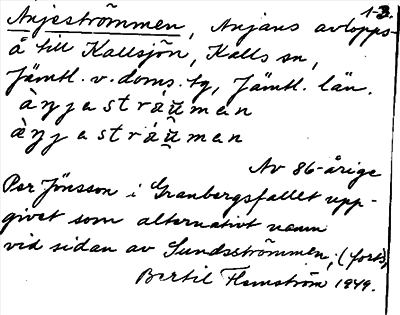 1-3.
Anjeströmmen, Anjans avlopps-
å till Kallsjön, Kalls sn,
Jämtl. v. doms. tg, Jämtl. län.
àŋjastráʉ̀man
àŋjastráʉ̀man
Av 86-årige
Per Jönsson i Granbergsfallet upp-
givet som alternativt namn
vid sidan av Sundsströmmen; (forts)
Bertil Flemström 1949.